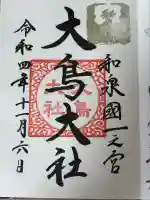 和泉國一之宮
大鳥大社
令和四年十一月六日